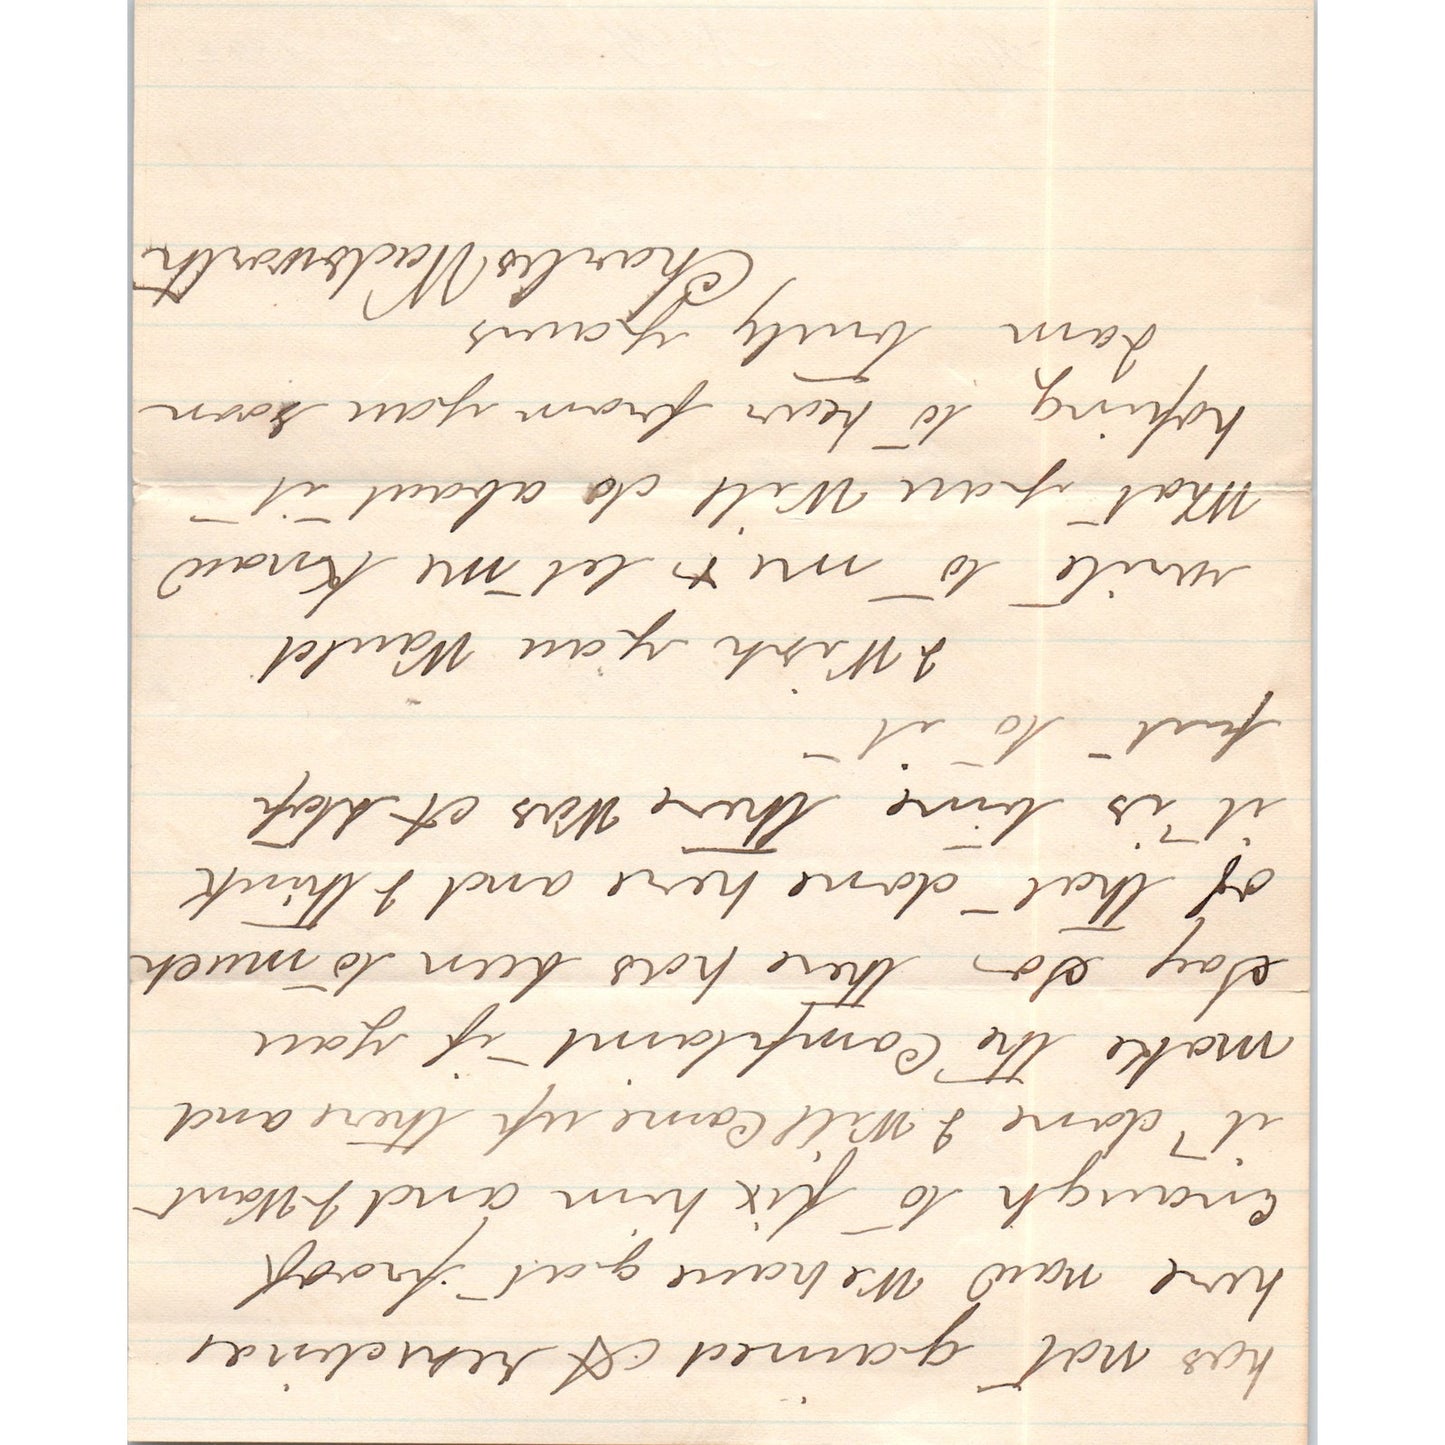 has not gained A residence
here now We have got proof
Enough to fix him and I Want
it done I Will Come up there and
make the Complaint if you
Say So there has been to much
of that done here and I think
it is time there Was A stop
put to it
I Wish you Would
write to me & let me Know
What you Will do about it
hoping to hear from you soon
I am truly yours
Charles Wadsworth